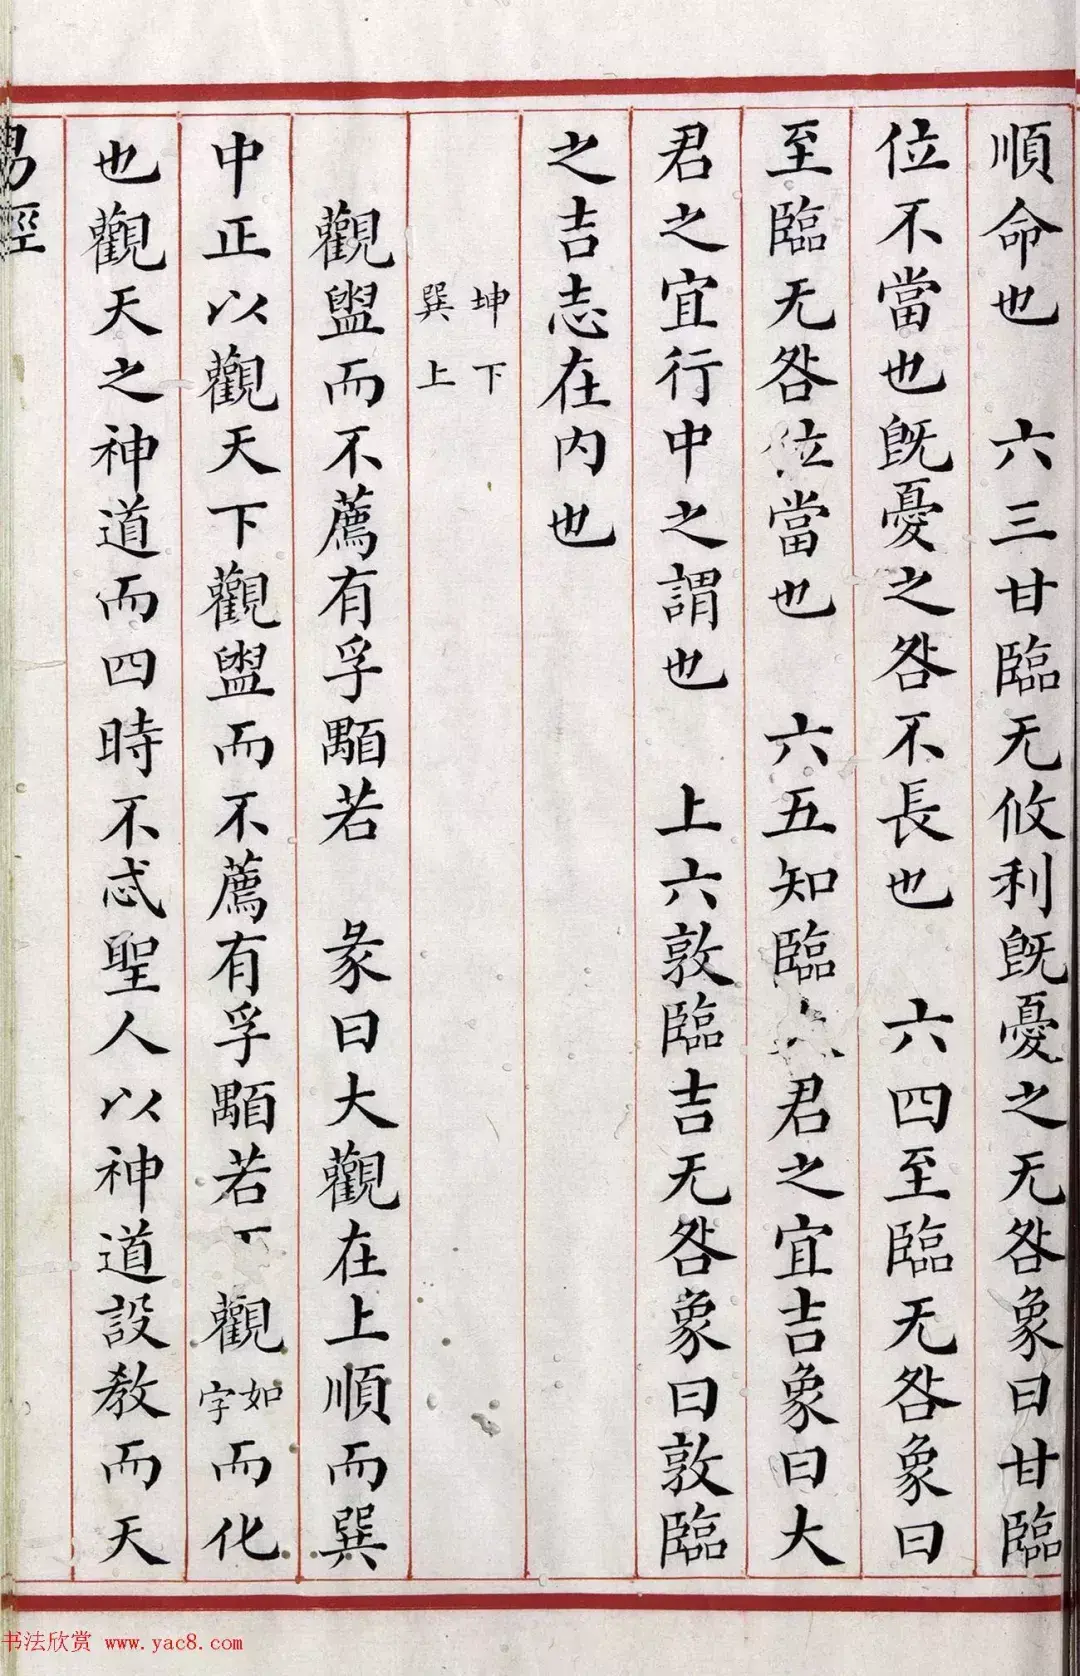 順命也　六三甘臨无攸利旣憂之无咎象曰甘臨
位不當也旣憂之咎不長也　六四至臨无咎象曰
至臨无咎位當也　六五知臨大君之宜吉象曰大
君之宜行中之謂也　上六敦臨吉无咎象曰敦臨
之吉志在内也
坤下
巽上
觀盥而不薦有孚顒若　彖曰大觀在上順而巽
中正以觀天下觀盥而不薦有孚顒若下觀如字而化
也觀天之神道而四時不忒聖人以神道設教而天
易經
书法欣赏 www.yac8.com